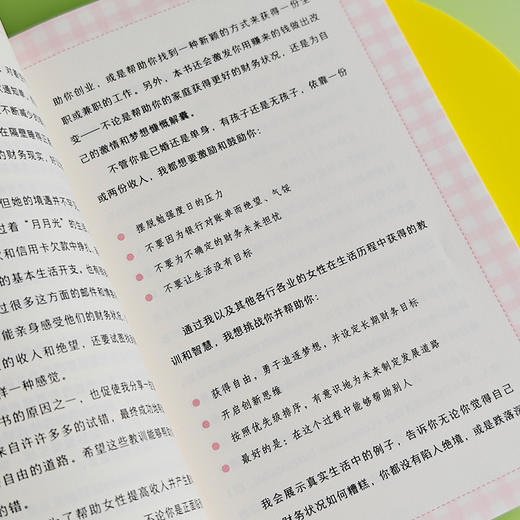 对着
不断减少
在隔壁
的财务现实，
但她的境遇并不
过着“月月光”的生
和信用卡欠款中挣扎
的基本生活开支。也有
过很多这方面的邮件和
能亲身感受他们的财务状况
的收入和绝望，还要试图
样一种感觉。
书的原因之一，也促使我分享
来自许许多多的试错，最终成功
自由的道路。希望这些教训能够帮
的错。
了帮助女性提高收入并产生
不论你是正面
助你创业，或是帮助你找到一种新颖的方式来获得一份全
职或兼职的工作。另外，本书还会激发你用赚来的钱做出改
变——不论是帮助你的家庭获得更好的财务状况，还是为自
己的激情和梦想慷慨解囊。
不管你是已婚还是单身，有孩子还是无孩子，依靠一份
或两份收入，我都想要激励和鼓励你：
摆脱勉强度日的压力
不要因为银行对账单而绝望、气馁
不要为不确定的财务未来担忧
不要让生活没有目标
通过我以及其他各行各业的女性在生活历程中获得的教
训和智慧，我想挑战你并帮助你：
获得自由，勇于追逐梦想，并设定长期财务目标
开启创新思维
按照优先级排序，有意识地为未来制定发展道路
最好的是：在这个过程中能够帮助别人
我会展示真实生活中的例子，告诉你无论你觉得自己
财务状况如何糟糕，你都没有陷入绝境，或是跌落深